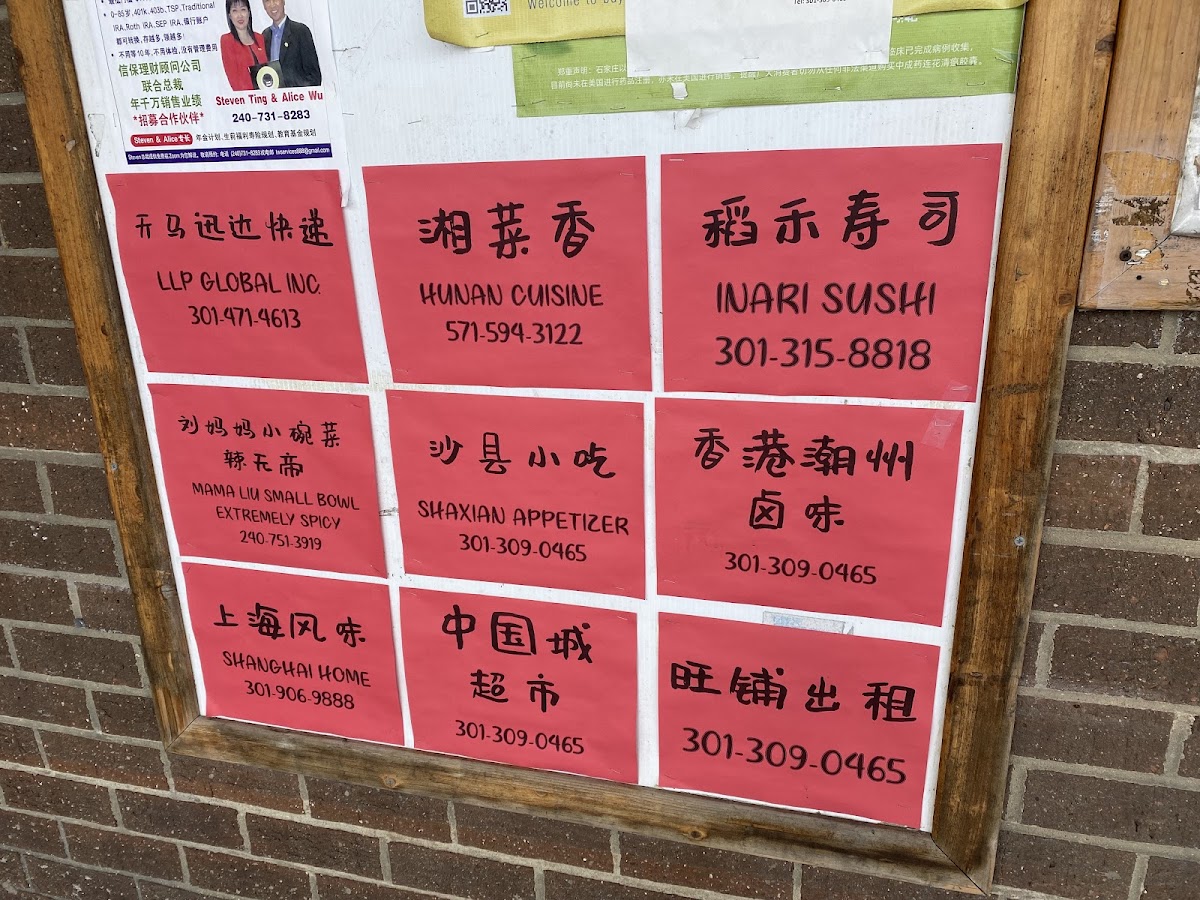 • 0~85岁,401k,403b,TSP,Traditional
IRA,Roth IRA,SEP IRA,银行账户
都可转换,存越多,领越多!
• 不用等10年,不用体检,没有管理费同
信保理财顾问公司
联合总裁
年千万销售业绩
*招募合作伙伴*
Steven Ting & Alice Wu
240-731-8283
Steven & Alice 会长
年金计划、生前福利寿险规划、教育基金规划
Welcome to buy
郑重声明:石家庄以
目前尚未在美国进行药品注册
床已完成病例收集,
购买中成药连花清瘟胶囊。
天马迅达快递
LLP GLOBAL INC.
301-471-4613
湘菜香
HUNAN CUISINE
571-594-3122
稻禾寿司
INARI SUSHI
301-315-8818
刘妈妈小碗菜
辣无帝
MAMA LIU SMALL BOWL
EXTREMELY SPICY
240-751-3919
沙县小吃
SHAXIAN APPETIZER
301-309-0465
香港潮州
卤味
301-309-0465
上海风味
SHANGHAI HOME
301-906-9888
中国城
超市
301-309-0465
旺铺出租
301-309-0465